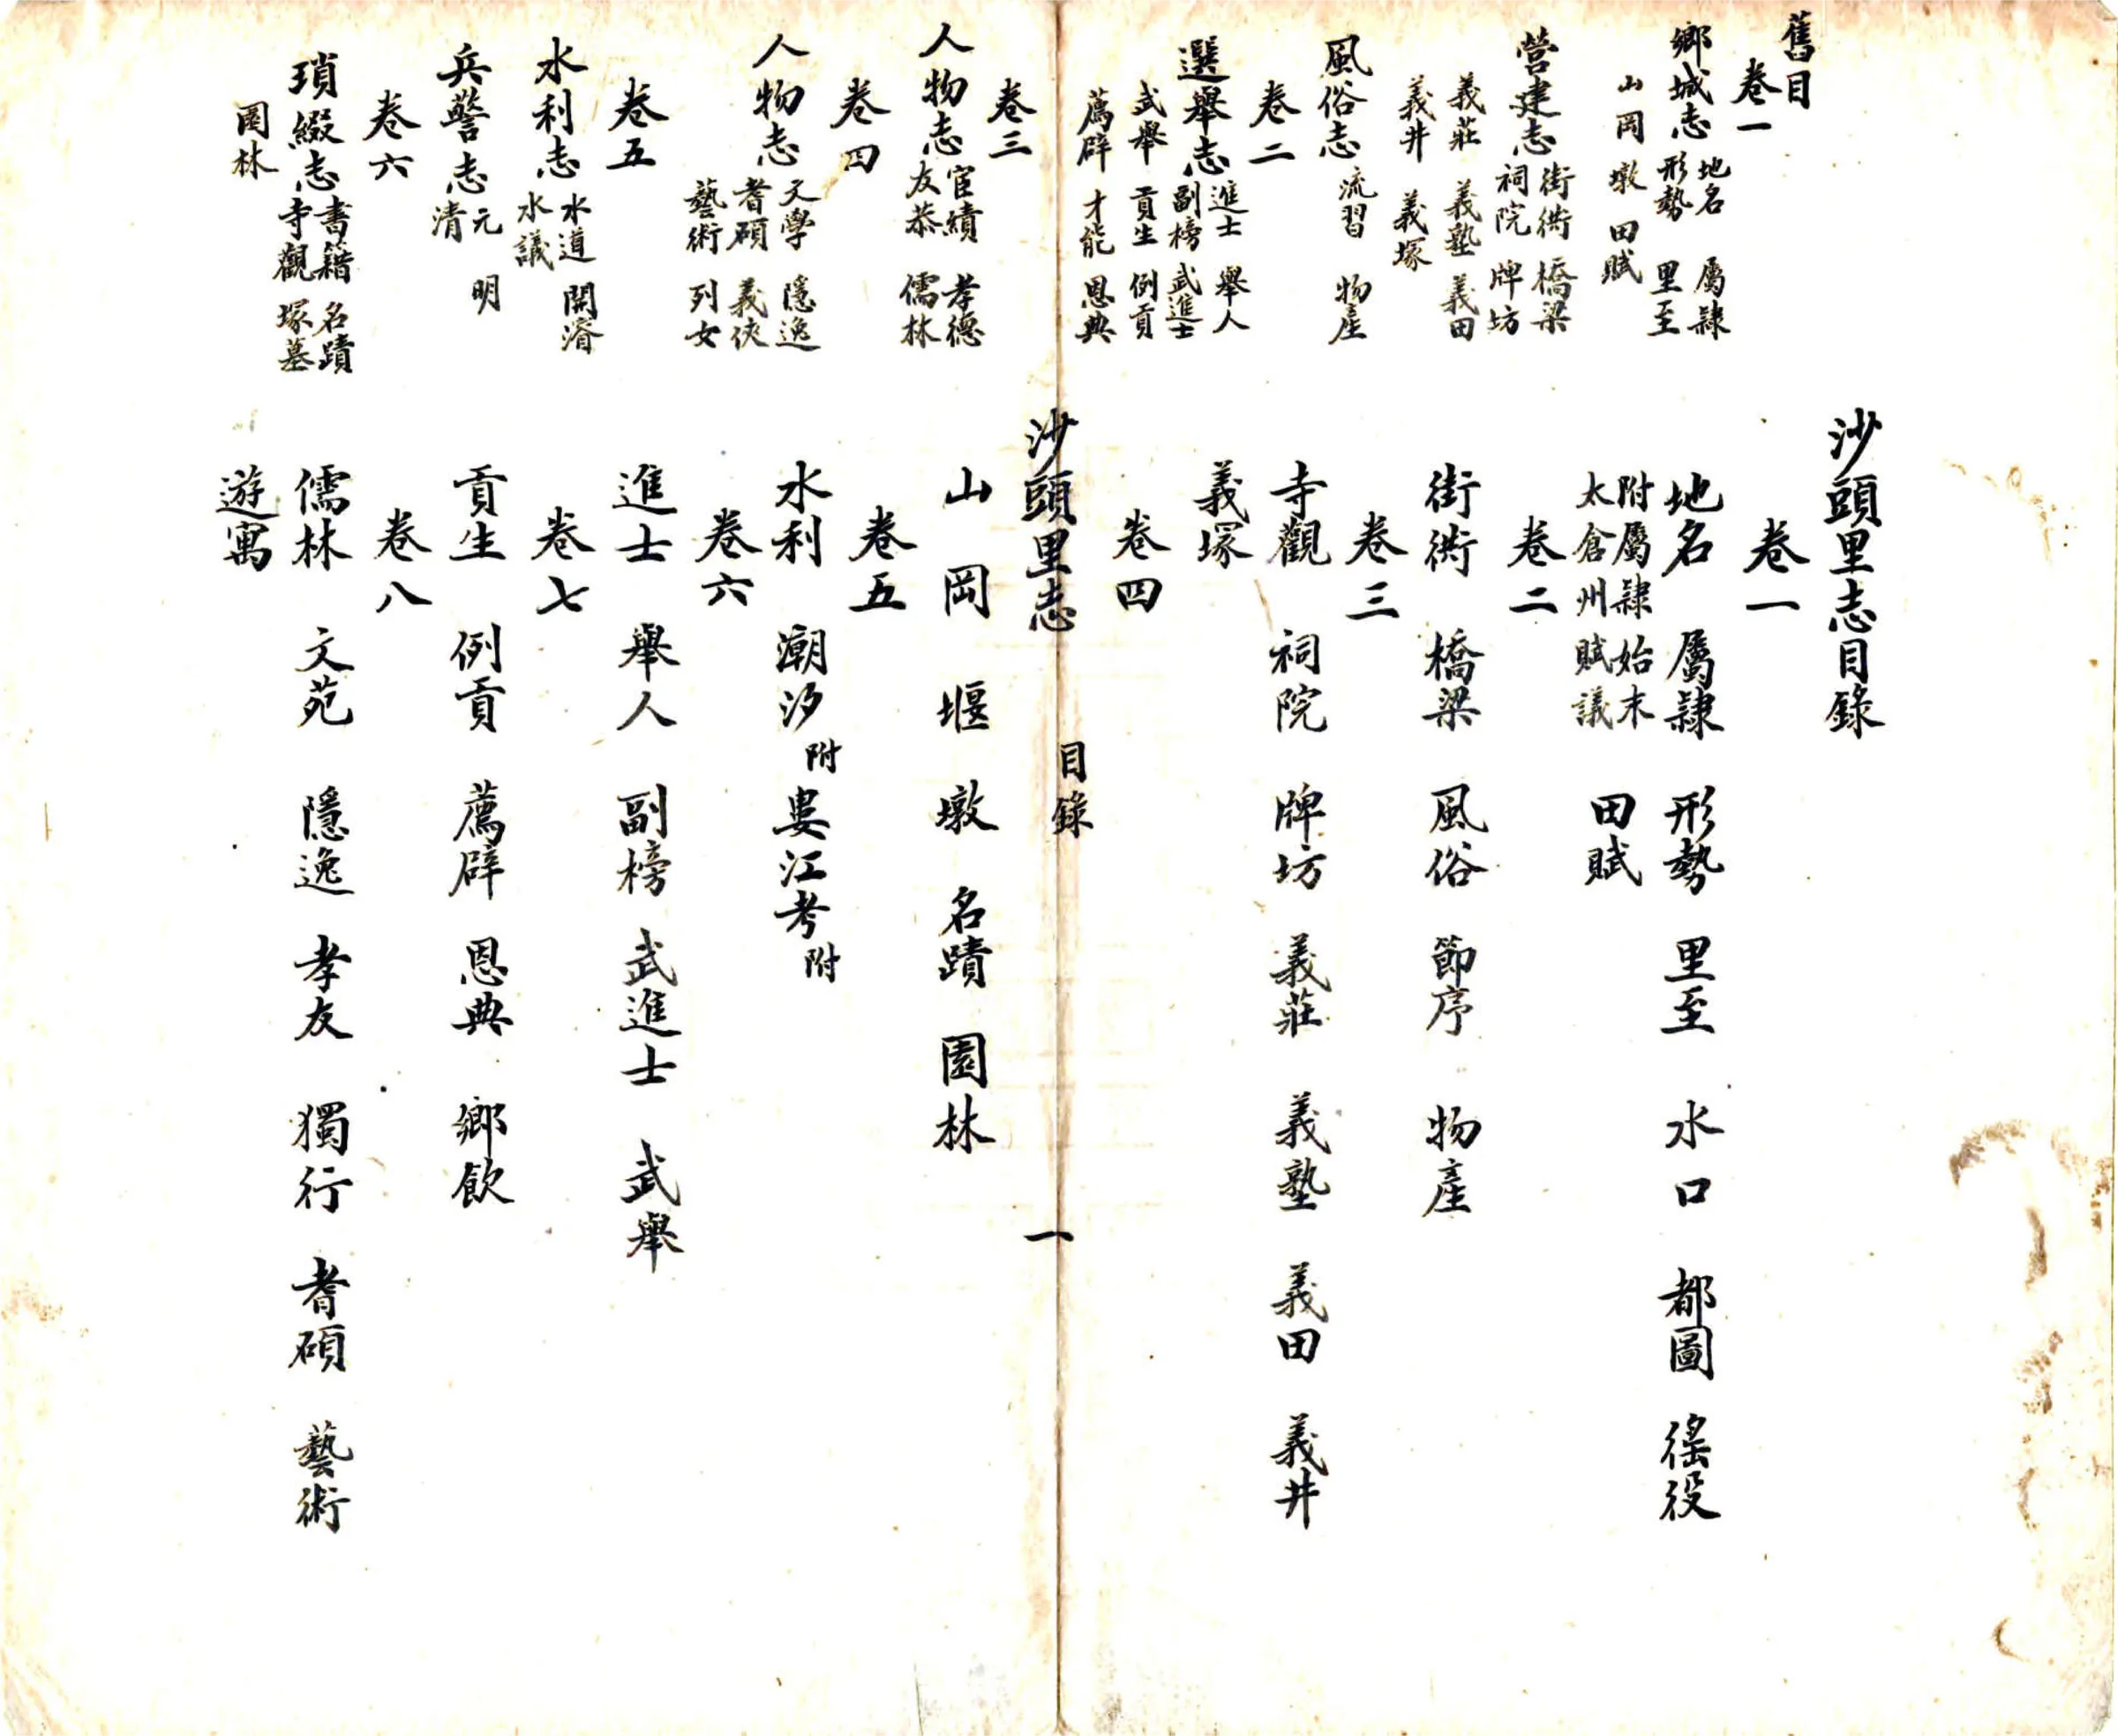 舊目
卷一
鄉城志 地名 屬隸
形勢 里至
山岡 墩 田賦
營建志 街衖 橋梁
祠院 牌坊
義莊 義塾 義田
義井 義塚
風俗志 流習 物產
卷二
選舉志 進士 舉人
副榜 武進士
武舉 貢生 例貢
薦辟 才能 恩典
卷三
人物志 宦績 孝德
友恭 儒林
卷四
人物志 文學 隱逸
耆碩 義俠
藝術 列女
卷五
水利志 水道 開濬
水議
兵警志 元 明
清
卷六
瑣綴志 書籍 名蹟
寺觀 塚墓
園林
沙頭里志目錄
卷一
地名 屬隸 形勢 里至 水口 都圖 徭役
附屬隸始末
太倉州賦議 田賦
卷二
街衖 橋梁 風俗 節序 物產
卷三
寺觀 祠院 牌坊 義莊 義塾 義田 義井
義塚
卷四
沙頭里志 目錄 一
山 岡 堰 墩 名蹟 園林
卷五
水利 潮汐附 婁江考附
卷六
進士 舉人 副榜 武進士 武舉
卷七
貢生 例貢 薦辟 恩典 鄉飲
卷八
儒林 文苑 隱逸 孝友 獨行 耆碩 藝術
遊寓